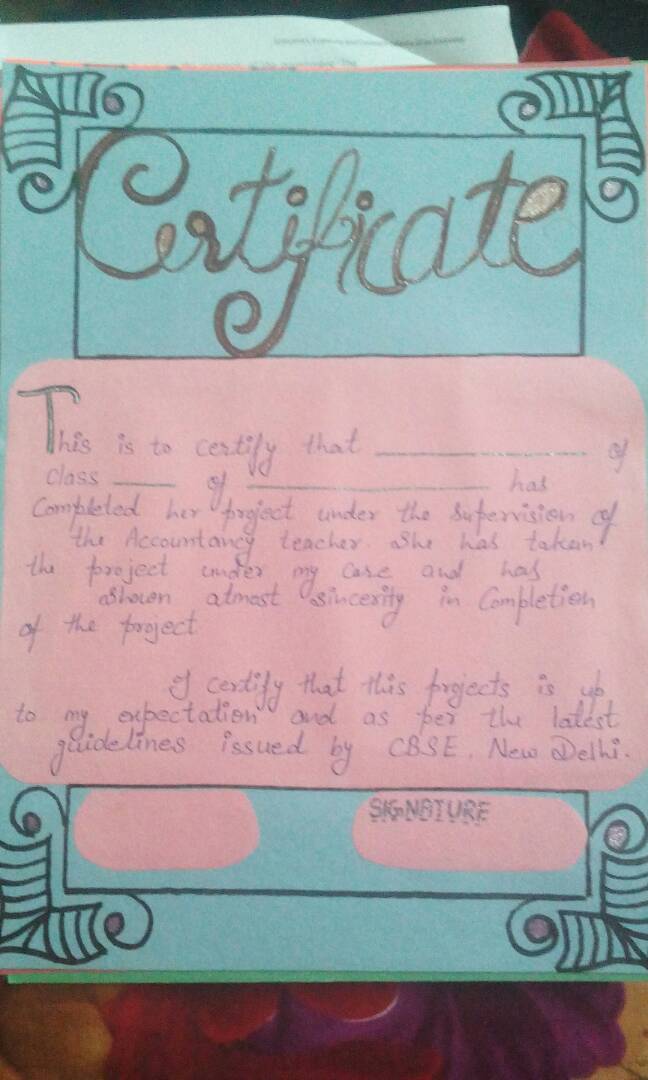 Certificate
This is to certify that ____________ of
class ____ of ____________ has
Completed her project under the supervision of
the Accountancy teacher. She has taken
the project under my care and has
shown atmost sincerity in Completion
of the project
I certify that this projects is up
to my expectation and as per the latest
guidelines issued by CBSE, New Delhi.
SIGNATURE